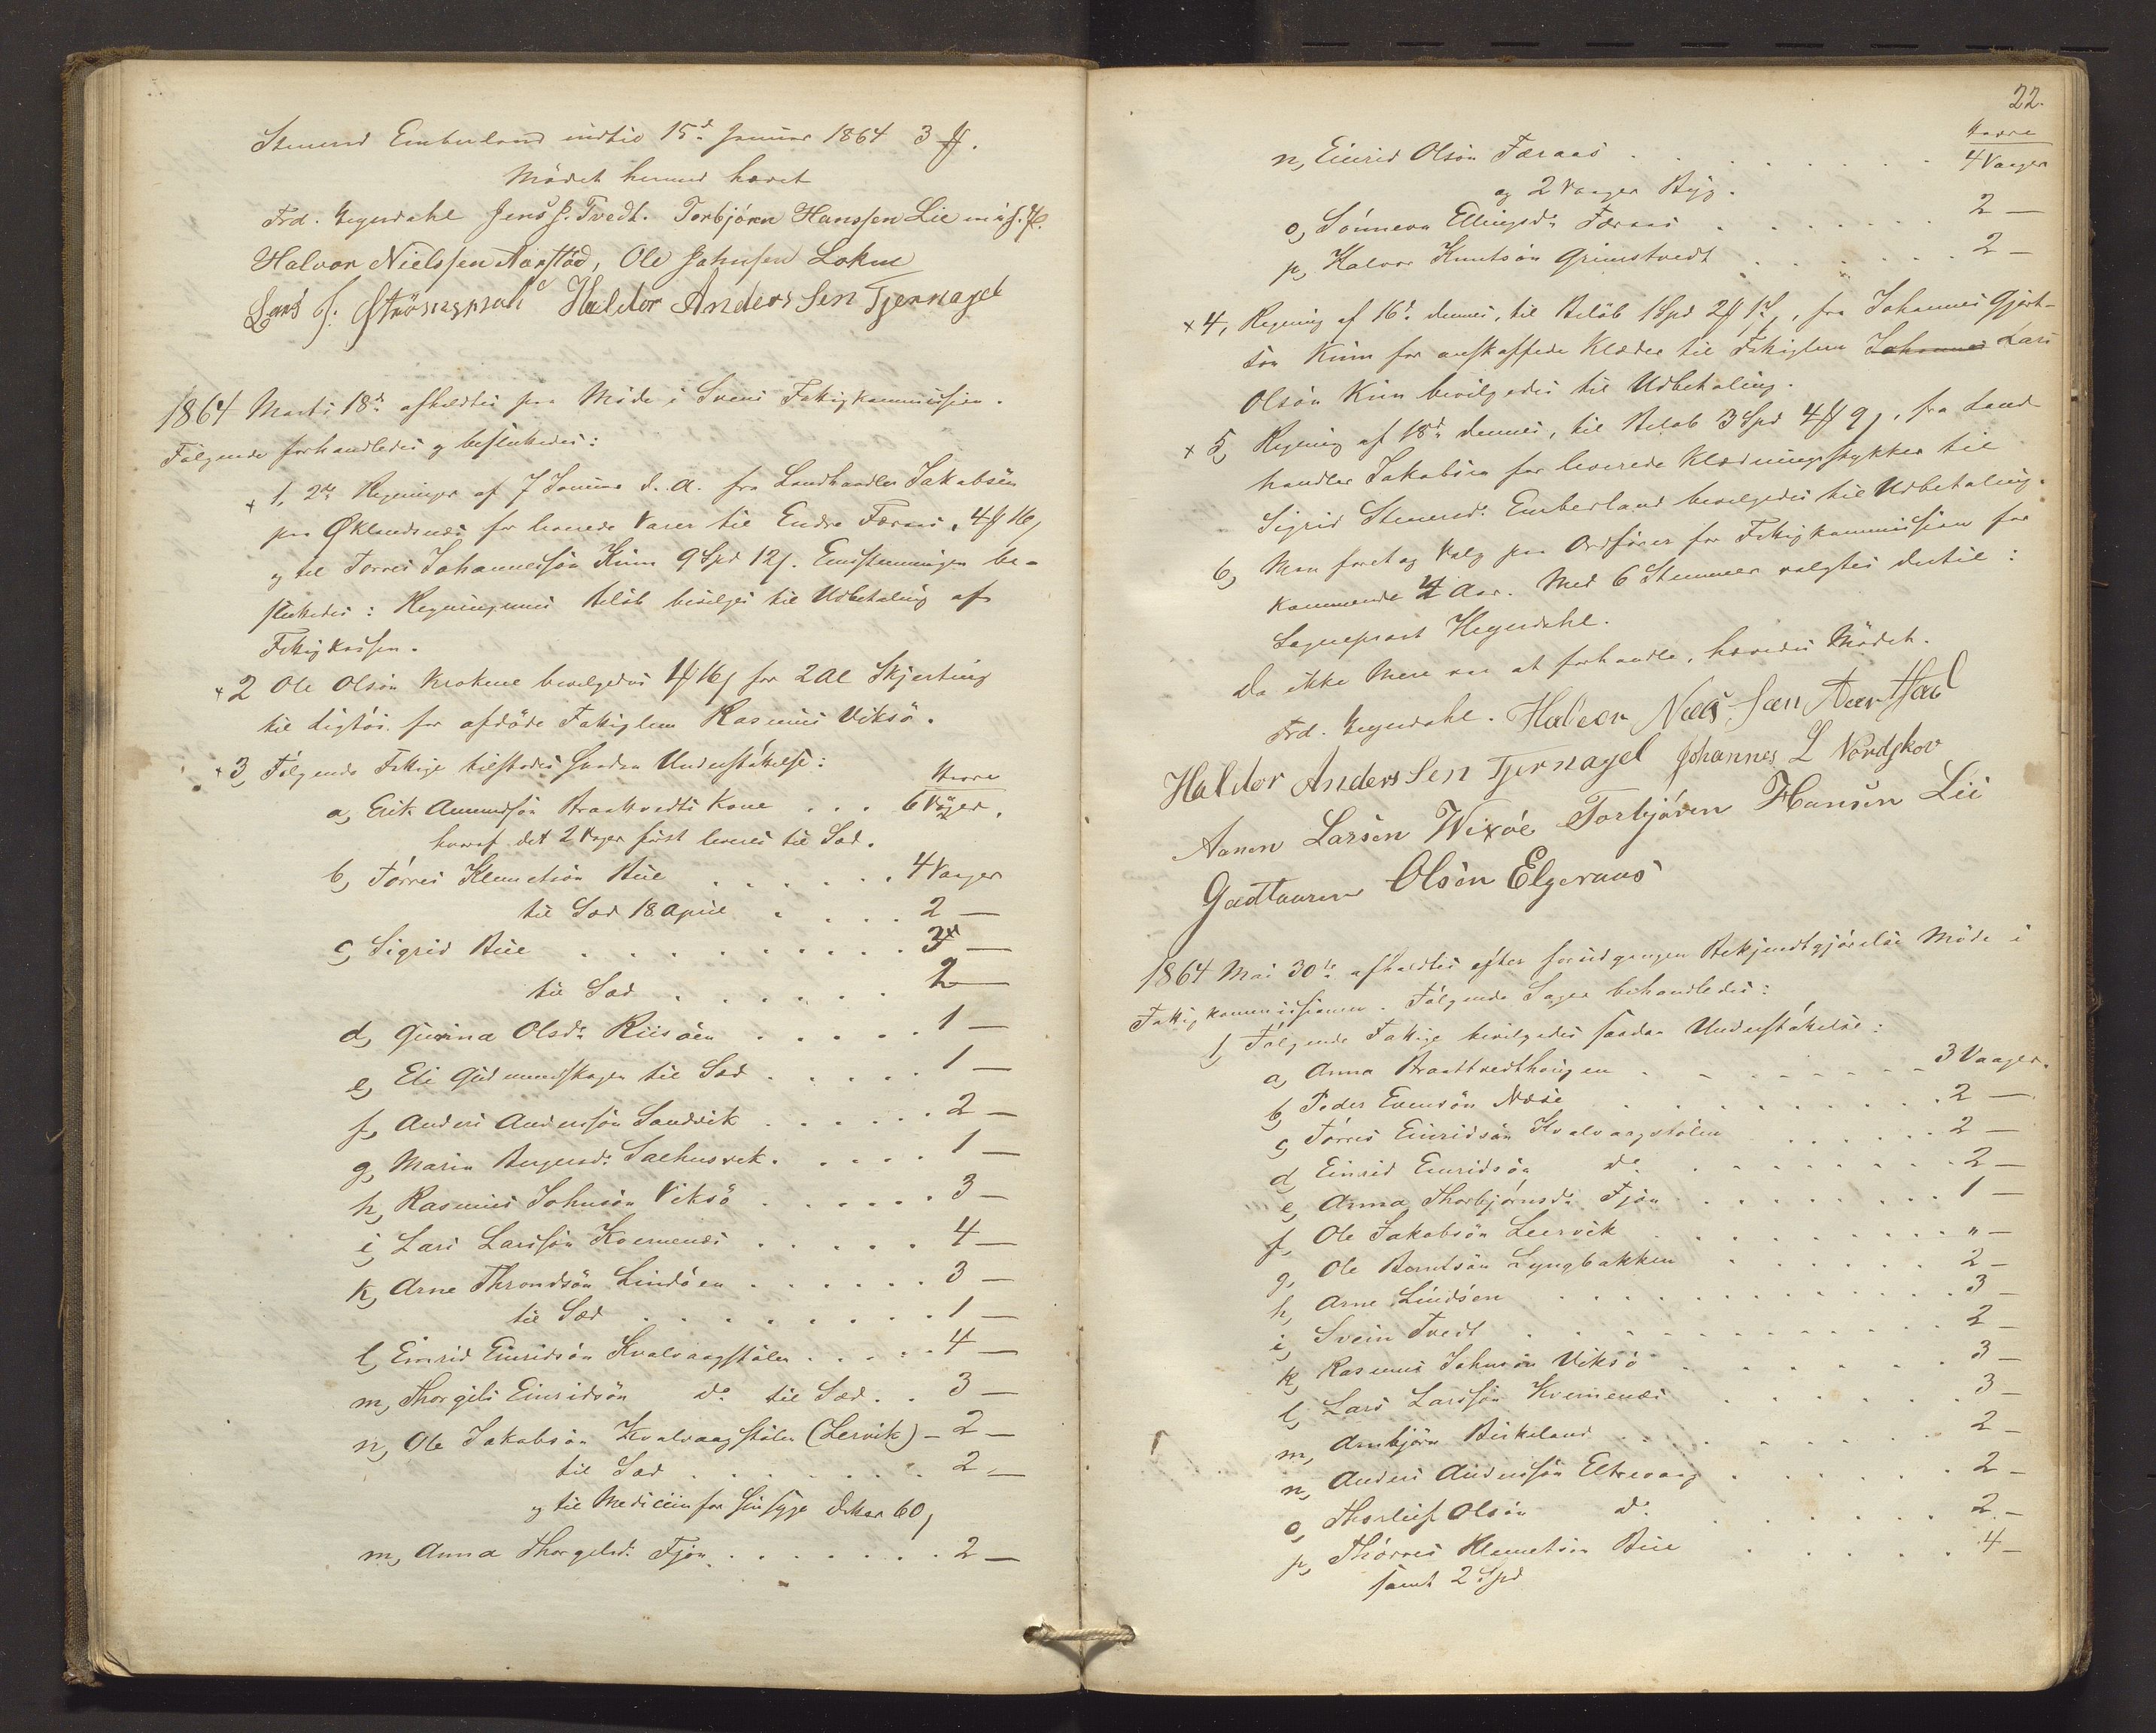 Stenerd Emberland indtil 15d Januar 1864 3 ₰.
Mödet hermed hævet
Frd. Hegerdahl Jens J. Tvedt. Torbjörn Hanssen Lie m.i.f.P.
Halvor Nielssen Aarstad, Ole Johnsen Lokne
Lars J: Strömsmoh Haldor Anderssen Tjernagel
1864 Marts 18de afholdtes paa Möde i Sveens Fattigkommission.
Fölgende forhandledes og besluttedes:
x 1, 2de Regninger af 7 Januar d. A. fra Landhandler Jakobsön
paa Øklandsnæs for leverede Varer til Endre Færaas, 4 ₰ 16 ,
og til Torres Johannesön Kinn 9 Spd 12 ,. Enstemmigen be-
sluttedes: Regningernes Belöb bevilges til Udbetaling af
Fattigkassen.
x 2 Ole Olsön Krokene bevilgedes 1 ₰ 16 , for 2 Al Skjorting
til Ligtöi for afdöde Fattiglem Rasmus Viksö.
x 3, Fölgende Fattige tilstodes saadan Understöttelse:
Havre
a, Erik Amundsön Braatvedts Kone . . . 6 Vöger,
hvoraf det 2 Voger först leveres til Sæd.
b, Törres Klemetsön Bue . . . . . . 4 Vaager
til Sæd 18 April . . . . 2 —
c, Sigrid Bue . . . . . . . . . 3x —
til Sæd . . . . . . 2 —
d, Gurina Olsdr Riisöen . . . . . 1 —
e, Eli Gudmundshagen til Sæd . . . . . 1 —
f, Anders Andersön Sandvik . . . . . 2 —
g, Marin Bergesdr Salhusvik . . . . . 1 —
h, Rasmus Johnsön Viksö . . . . . 3 —
i, Lars Larssön Kvernenæs . . . . . 4 —
k, Arne Throndsön Lindöen . . . . . . 3 —
til Sæd . . . . . . . . . 1 —
l, Einrid Einridsön Kvalvaagstölen . . . . . 4 —
m, Thorgils Einridsön do til Sæd . . 3 —
n, Ole Jakobsön Kvalvaagstölen (Lervik) - 2 —
til Sæd . . . . . . . 2 —
og til Medicin for Sin syge Datter 60 ,
m, Anna Thorgilsdr Fjön . . . . . . . 2 —
22.
Havre
n, Einrid Olsön Færaas . . . . . . . . 4 Vaager
og 2 Vaager Byg.
o, Sönneva Ellingsdr Færaas . . . . . . . 2 —
p, Halvor Knutsön Grimstvedt . . . . . . 2 —
x 4, Regning af 16de dennes, til Belöb 1 Spd 2 ₰ 1 ,, fra Johannes Gjert-
sön Kinn for anskaffede Klæder til Fattiglem Johannes Lars
Olsön Kinn bevilgedes til Udbetaling.
x 5, Regning af 18de dennes, til Belöb 3 Spd 4 ₰ 9 ,, fra Land-
handler Jakobsön for leverede Klædningsstykker til
Sigrid Stenersdr Emberland bevilgedes til Udbetaling.
6, Man foretog Valg paa Ordförer for Fattigkommissionen for
kommende 4 Aar. Med 6 Stemmer valgtes dertil:
Sogneprest Hegerdahl.
Da ikke mere var at forhandle, hævedes Mödet.
Frd. Hegerdahl. Halvor Niels Sen Aarstad
Haldor Anderssen Tjernagel Johannes L Nordskov
Aanen Larsen Wixöe Torbjörn Hansen Lie
Gudtaurm Olsön Elgeraas
1864 Mai 30te afholdtes efter forudgangen Bekjendtgjörelse Möde i
Fattigkommissionen. Fölgende Sager behandledes:
1, Fölgende Fattige bevilgedes saadan Understöttelse:
a, Anna Braattvedthougen . . . . . . . . . 3 Vaager.
b, Peder Evensön Næse . . . . . . . . . . 2 —
c, Törres Einridsön Kvalvaagstölen . . . . . . 2 —
d, Einrid Einridsön do . . . . . . . . . 2 —
e, Anna Thorbjörnsdr Fjön . . . . . . . . . 1 —
f, Ole Jakobsön Leervik . . . . . . . . . . " —
g, Ole Berntsön Lyngbakken . . . . . . . 2 —
h, Arne Lindöen . . . . . . . . . . . . . 3 —
i, Svein Tvedt . . . . . . . . . . . . . 2 —
k, Rasmus Johnsön Viksö . . . . . . . 3 —
l, Lars Larssön Kvernenæs . . . . . . 3 —
m, Arnbjörn Birkeland . . . . . . . . . 2 —
n, Anders Andersön Eltrevaag . . . . . . 2 —
o, Thorleif Olsön do . . . . . . . 2 —
p, Thörres Klemetsön Bue . . . . . 4 —
samt 2 Spd